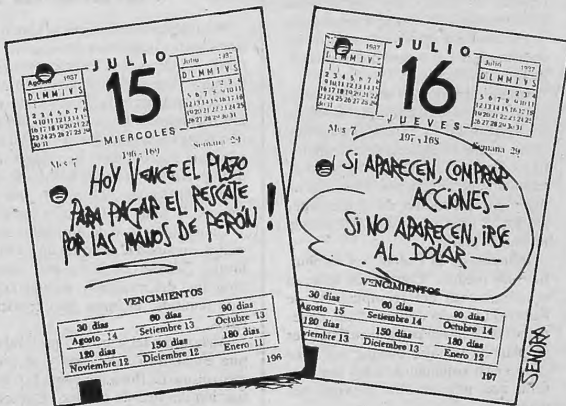 JULIO
Agosto 1987
D L M M J V S
1
2 3 4 5 6 7 8
9 10 11 12 13 14 15
16 17 18 19 20 21 22
23 24 25 26 27 28 29
30 31
15
Julio 1987
D L M M J V S
1 2 3 4
5 6 7 8 9 10 11
12 13 14 15 16 17 18
19 20 21 22 23 24 25
26 27 28 29 30 31
MIERCOLES
Mes 7 196 - 169 Semana 29
HOY VENCE EL PLAZO
PARA PAGAR EL RESCATE
POR LAS MANOS DE PERÓN!
VENCIMIENTOS
30 días 60 días 90 días
Agosto 14 Setiembre 13 Octubre 13
120 días 150 días 180 días
Noviembre 12 Diciembre 12 Enero 11
196
JULIO
1987
D L M M J V S
1
2 3 4 5 6 7 8
9 10 11 12 13 14 15
16 17 18 19 20 21 22
23 24 25 26 27 28 29
30 31
16
Julio 1987
D L M M J V S
1 2 3 4
5 6 7 8 9 10 11
12 13 14 15 16 17 18
19 20 21 22 23 24 25
26 27 28 29 30 31
JUEVES
Mes 7 197 - 168 Semana 29
SI APARECEN, COMPRAR
ACCIONES—
SI NO APARECEN, IRSE
AL DOLAR—
VENCIMIENTOS
30 días 60 días 90 días
Agosto 15 Setiembre 14 Octubre 14
120 días 150 días 180 días
Noviembre 13 Diciembre 13 Enero 12
197
SENDRA